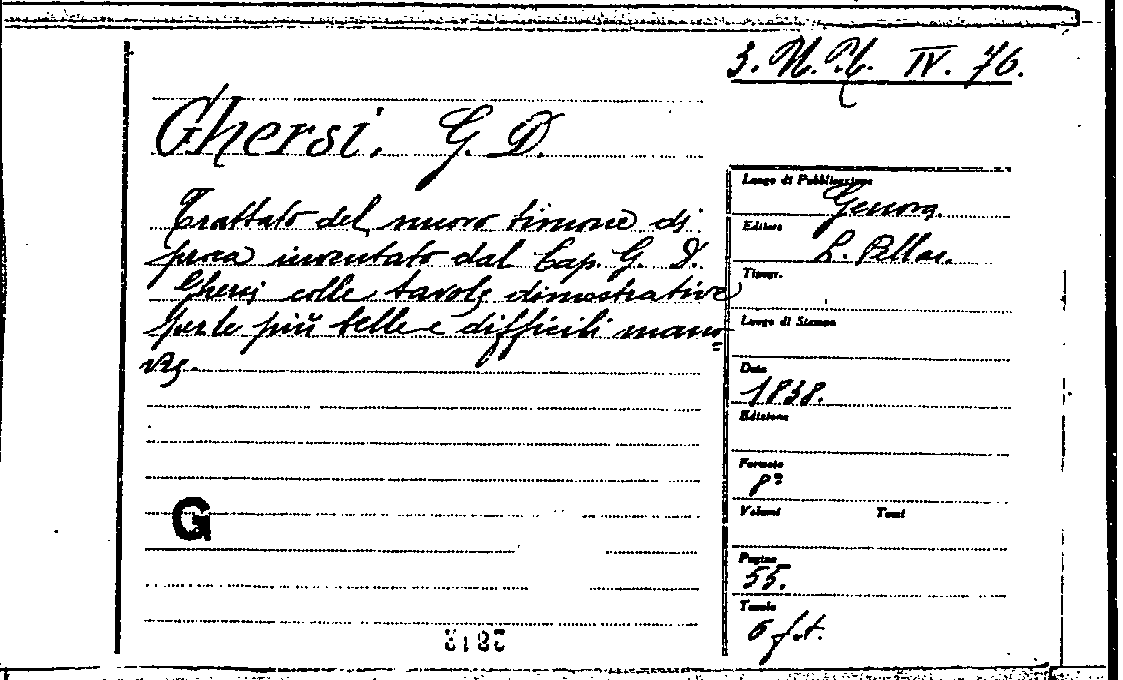 3. N. N. IV. 76.
Ghersi. G. D.
Trattato del nuovo timone di
prora inventato dal Cap. G. D.
Ghersi colle tavole dimostrative
per le più belle e difficili mano=
vre.
G
Luogo di Pubblicazione
Genova.
Editore
L. Pellas.
Tipogr.
Luogo di Stampa
Data
1838.
Edizione
Formato
8º
Volumi Tomi
Pagine
55.
Tavole
6 f.t.